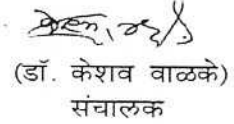 (डॉ. केशव वाळके)
संचालक